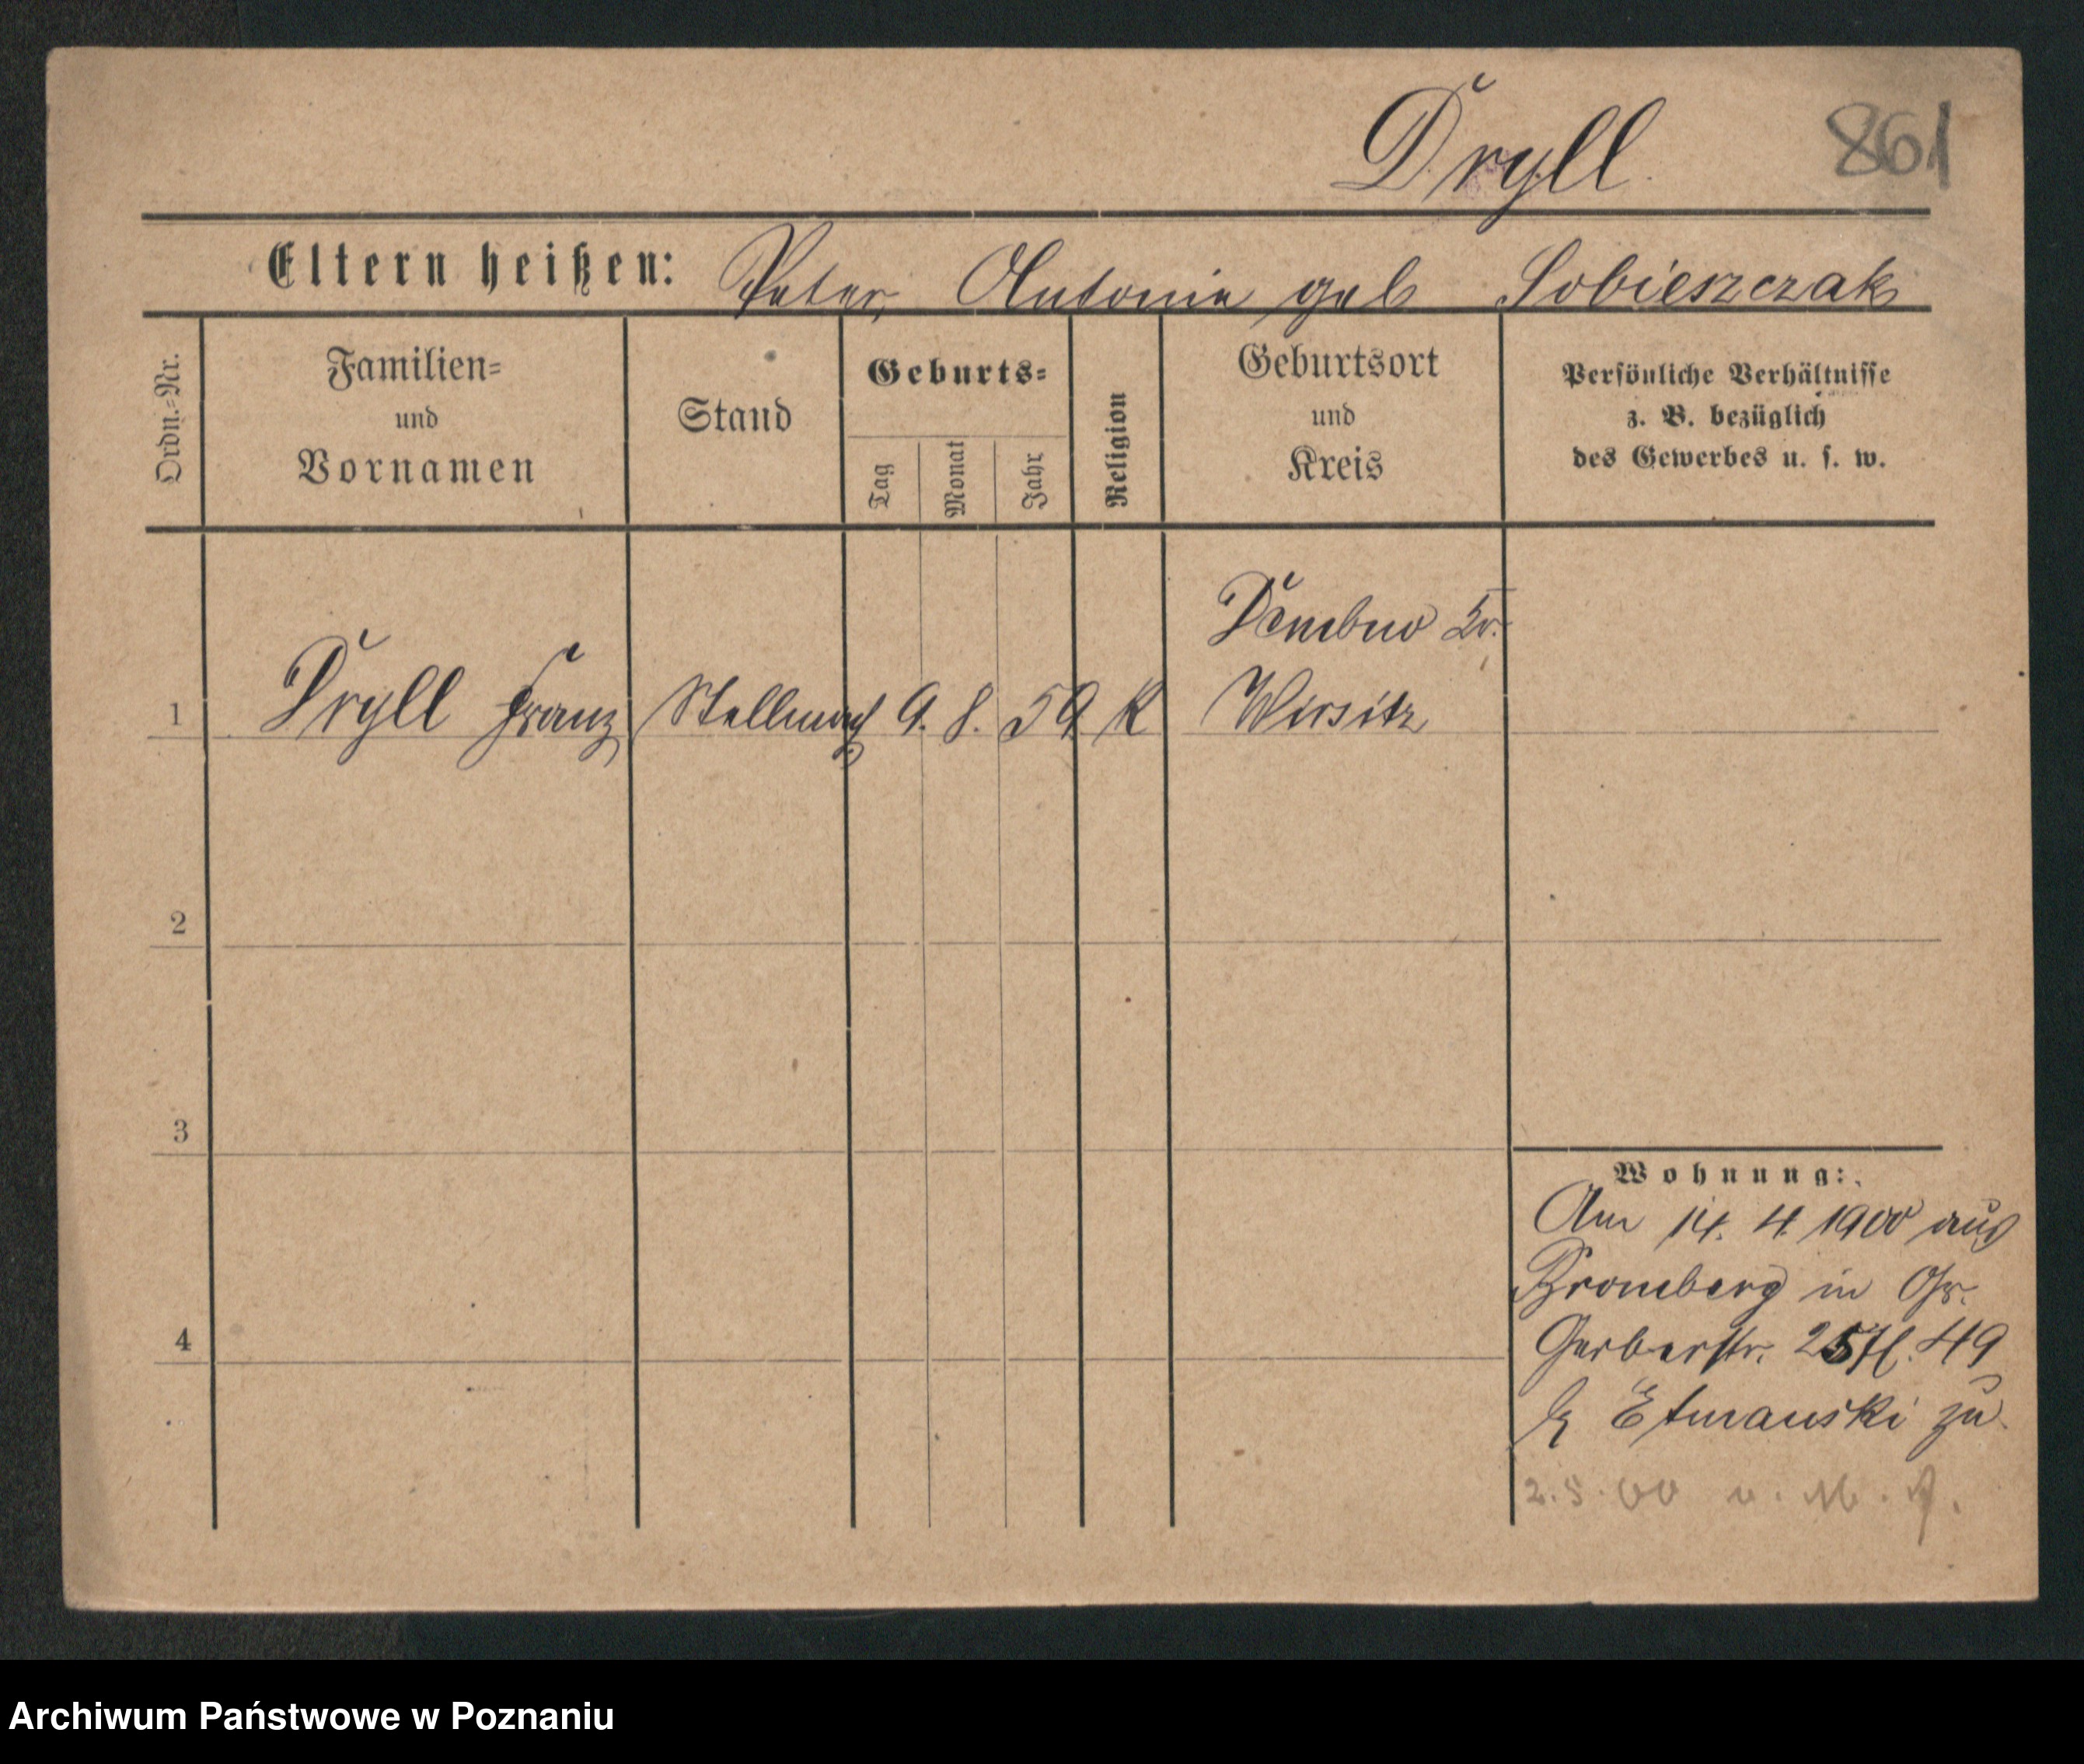 Dryll
861
Eltern heißen: Peter, Antonie geb Sobieszczak
Ordn.-Nr.
Familien-
und
Vornamen
Stand
Geburts-
Tag
Monat
Jahr
Religion
Geburtsort
und
Kreis
Persönliche Verhältnisse
z. B. bezüglich
des Gewerbes u. s. w.
Dembno Kr.
1 Dryll Franz Stellmach 9. 8. 59 K Wirsitz
2
3
4
Wohnung:
Am 14. 4. 1900 aus
Bromberg in Gr.
Gerberstr. 25 49
Etmanski zu
2.5.00 v. M.